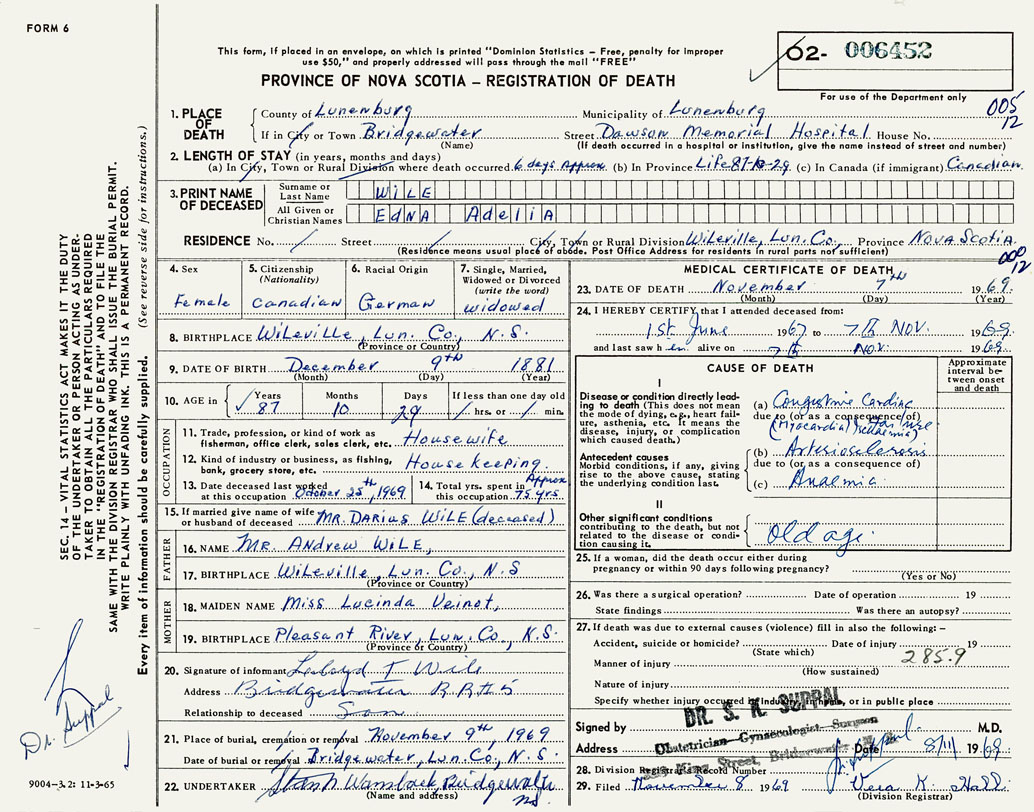 FORM 6
This form, if placed in an envelope, on which is printed "Dominion Statistics – Free, penalty for improper
use $50," and properly addressed will pass through the mail "FREE"
PROVINCE OF NOVA SCOTIA – REGISTRATION OF DEATH
02- 006452
For use of the Department only
005
12
1. PLACE OF DEATH
County of Lunenburg Municipality of Lunenburg
If in City or Town Bridgewater Street Dawson Memorial Hospital House No.
(Name) (If death occurred in a hospital or institution, give the name instead of street and number)
2. LENGTH OF STAY (in years, months and days)
(a) In City, Town or Rural Division where death occurred 6 days Approx (b) In Province Life 87-10-29 (c) In Canada (if immigrant) Canadian
3. PRINT NAME OF DECEASED
Surname or Last Name WILE
All Given or Christian Names EDNA Adelia
RESIDENCE No. / Street / City, Town or Rural Division Wileville, Lun. Co., Province Nova Scotia.
(Residence means usual place of abode. Post Office Address for residents in rural parts not sufficient)
000
12
4. Sex
Female
5. Citizenship
(Nationality)
Canadian
6. Racial Origin
German
7. Single, Married,
Widowed or Divorced
(write the word)
widowed
8. BIRTHPLACE Wileville, Lun. Co., N.S.
(Province or Country)
9. DATE OF BIRTH December 9th 1881
(Month) (Day) (Year)
10. AGE in Years Months Days If less than one day old
87 10 29 / hrs. or / min.
OCCUPATION
11. Trade, profession, or kind of work as
fisherman, office clerk, sales clerk, etc. Housewife
12. Kind of industry or business, as fishing,
bank, grocery store, etc. Housekeeping.
13. Date deceased last worked
at this occupation October 25th, 1969
14. Total yrs. spent in
this occupation Approx 75 yrs.
15. If married give name of wife
or husband of deceased MR. DARIUS WILE (deceased)
FATHER
16. NAME MR. ANDREW WILE,
17. BIRTHPLACE Wileville, Lun. Co., N.S
(Province or Country)
MOTHER
18. MAIDEN NAME Miss Lucinda Veinot,
19. BIRTHPLACE Pleasant River, Lun. Co., N.S.
(Province or Country)
20. Signature of informant Wile
Address Bridgewater R.R.#5
Relationship to deceased Son
21. Place of burial, cremation or removal November 9th, 1969
Date of burial or removal Bridgewater, Lun. Co., N.S
22. UNDERTAKER Bridgewater
(Name and address) NS
MEDICAL CERTIFICATE OF DEATH
23. DATE OF DEATH November 7th 1969.
(Month) (Day) (Year)
24. I HEREBY CERTIFY that I attended deceased from:
1st June 1967 to 7th Nov. 1969.
and last saw her alive on 7th Nov. 1969.
CAUSE OF DEATH
Approximate
interval be-
tween onset
and death
I
Disease or condition directly lead-
ing to death (This does not mean
the mode of dying, e.g., heart fail-
ure, asthenia, etc. It means the
disease, injury, or complication
which caused death.)
(a) Congestive Cardiac
due to (or as a consequence of)
failure
(Myocardial Ischaemia)
Antecedent causes
Morbid conditions, if any, giving
rise to the above cause, stating
the underlying condition last.
(b) Arteriosclerosis
due to (or as a consequence of)
(c) Anaemia
II
Other significant conditions
contributing to the death, but not
related to the disease or condi-
tion causing it.
Old age.
25. If a woman, did the death occur either during
pregnancy or within 90 days following pregnancy?
(Yes or No)
26. Was there a surgical operation? Date of operation 19
State findings Was there an autopsy?
27. If death was due to external causes (violence) fill in also the following: –
Accident, suicide or homicide? Date of injury 19
(State which)
285.9
Manner of injury
(How sustained)
Nature of injury
Specify whether injury occurred in industry, in home, or in public place
DR. S. K. SUPPAL
Obstetrician-Gynaecologist-Surgeon
King Street, Bridgewater
Signed by M.D.
Address Date 8/11 1969
28. Division Registrar's Record Number
29. Filed November 8 1969 Vera K. Hall
(Division Registrar)
SEC. 14 – VITAL STATISTICS ACT MAKES IT THE DUTY
OF THE UNDERTAKER OR PERSON ACTING AS UNDER-
TAKER TO OBTAIN ALL THE PARTICULARS REQUIRED
IN THE "REGISTRATION OF DEATH" AND TO FILE THE
SAME WITH THE DIVISION REGISTRAR WHO SHALL ISSUE THE BURIAL PERMIT.
WRITE PLAINLY WITH UNFADING INK. THIS IS A PERMANENT RECORD.
Every item of information should be carefully supplied. (See reverse side for instructions.)
Dr. Suppal
9004-3.2: 11-3-65